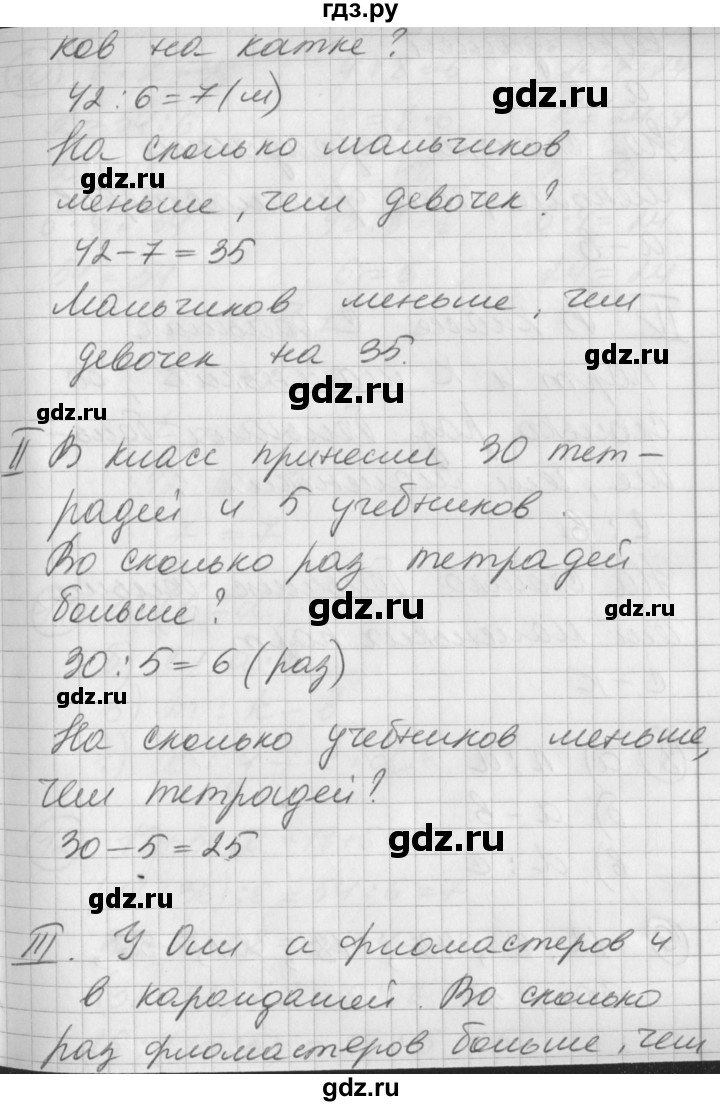 гдз.ру
ков на катке?
42:6=7(м)
gdz.ru
На сколько мальчиков
gdz.ru
меньше, чем девочек?
42-7=35
Мальчиков меньше, чем
девочек на 35.
gdz.ru
gdz.ru
gdz.ru
II В класс принесли 30 тет-
радей и 5 учебников.
Во сколько раз тетрадей
больше?
gdz.ru
gdz.ru
30:5=6 (раз)
gdz.ru
На сколько учебников меньше,
чем тетрадей?
30-5=25
gdz.ru
gdz.ru
III. У Оли а фломастеров и
в карандашей. Во сколько
раз фломастеров больше, чем
gdz.ru